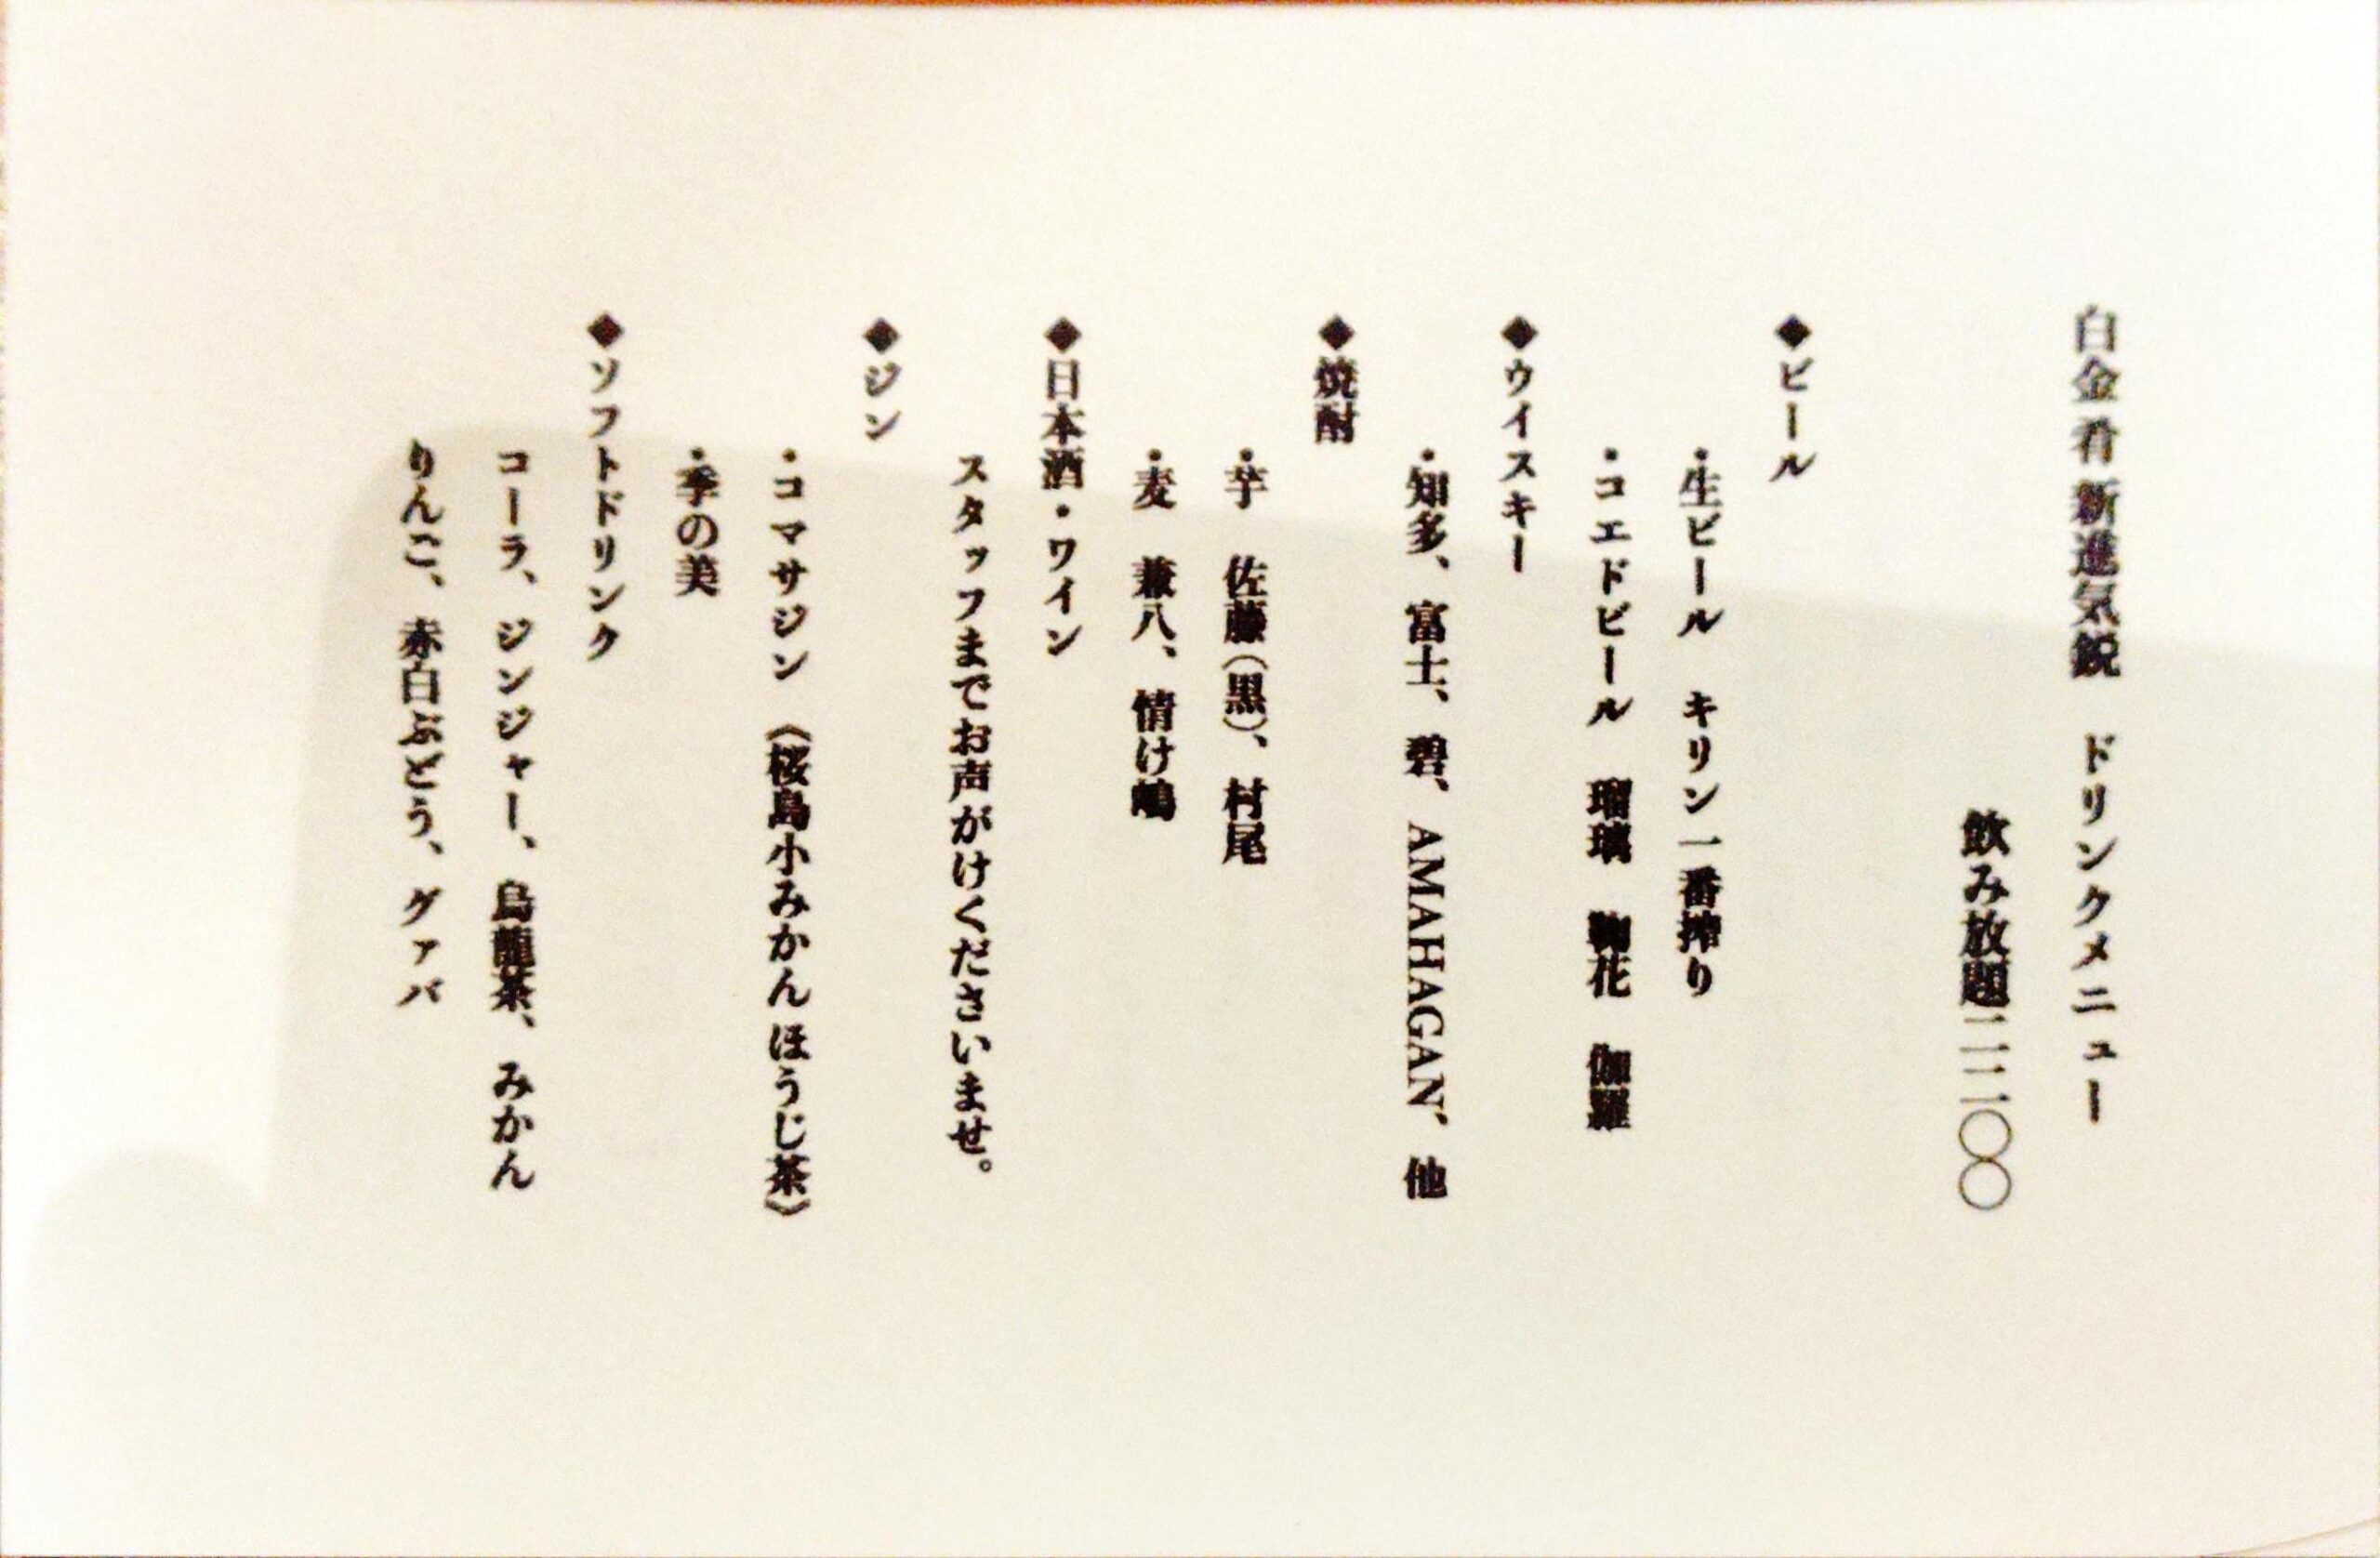 白金 肴 新進気鋭　ドリンクメニュー
飲み放題二二〇〇
◆ビール
・生ビール　キリン一番搾り
・コエドビール　瑠璃　鞠花　伽羅
◆ウイスキー
・知多、富士、碧、AMAHAGAN、他
◆焼酎
・芋　佐藤（黒）、村尾
・麦　兼八、情け嶋
◆日本酒・ワイン
スタッフまでお声がけくださいませ。
◆ジン
・コマサジン　《桜島小みかん ほうじ茶》
・季の美
◆ソフトドリンク
コーラ、ジンジャー、烏龍茶、みかん
りんご、赤白ぶどう、グァバ